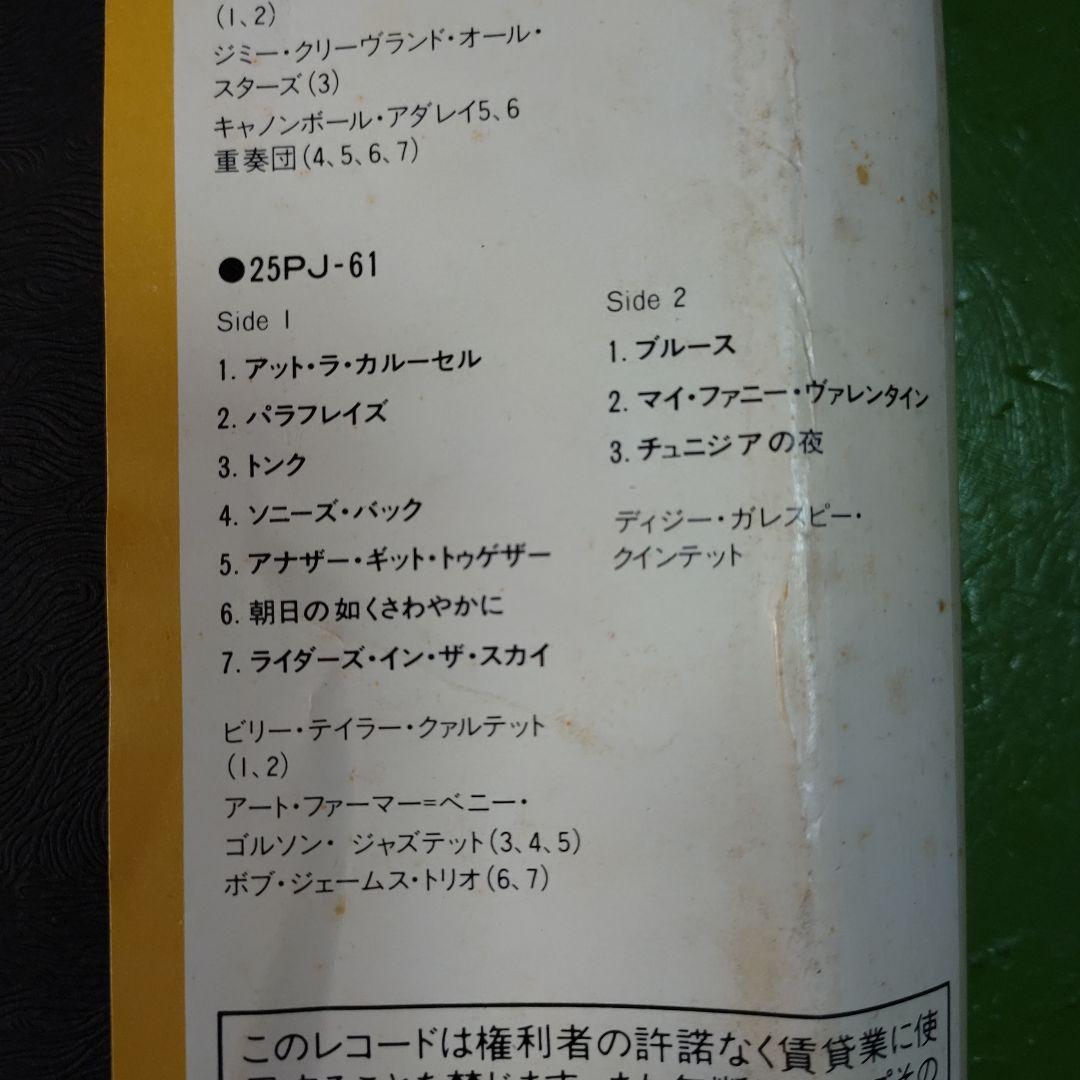 (1、2)
ジミー・クリーヴランド・オール・
スターズ(3)
キャノンボール・アダレイ5、6
重奏団(4、5、6、7)
●25PJ-61
Side 1
1. アット・ラ・カルーセル
2. パラフレイズ
3. トンク
4. ソニーズ・バック
5. アナザー・ギット・トゥゲザー
6. 朝日の如くさわやかに
7. ライダーズ・イン・ザ・スカイ
ビリー・テイラー・クァルテット
(1、2)
アート・ファーマー=ベニー・
ゴルソン・ ジャズテット(3、4、5)
ボブ・ジェームス・トリオ(6、7)
Side 2
1. ブルース
2. マイ・ファニー・ヴァレンタイン
3. チュニジアの夜
ディジー・ガレスピー・
クインテット
このレコードは権利者の許諾なく賃貸業に使